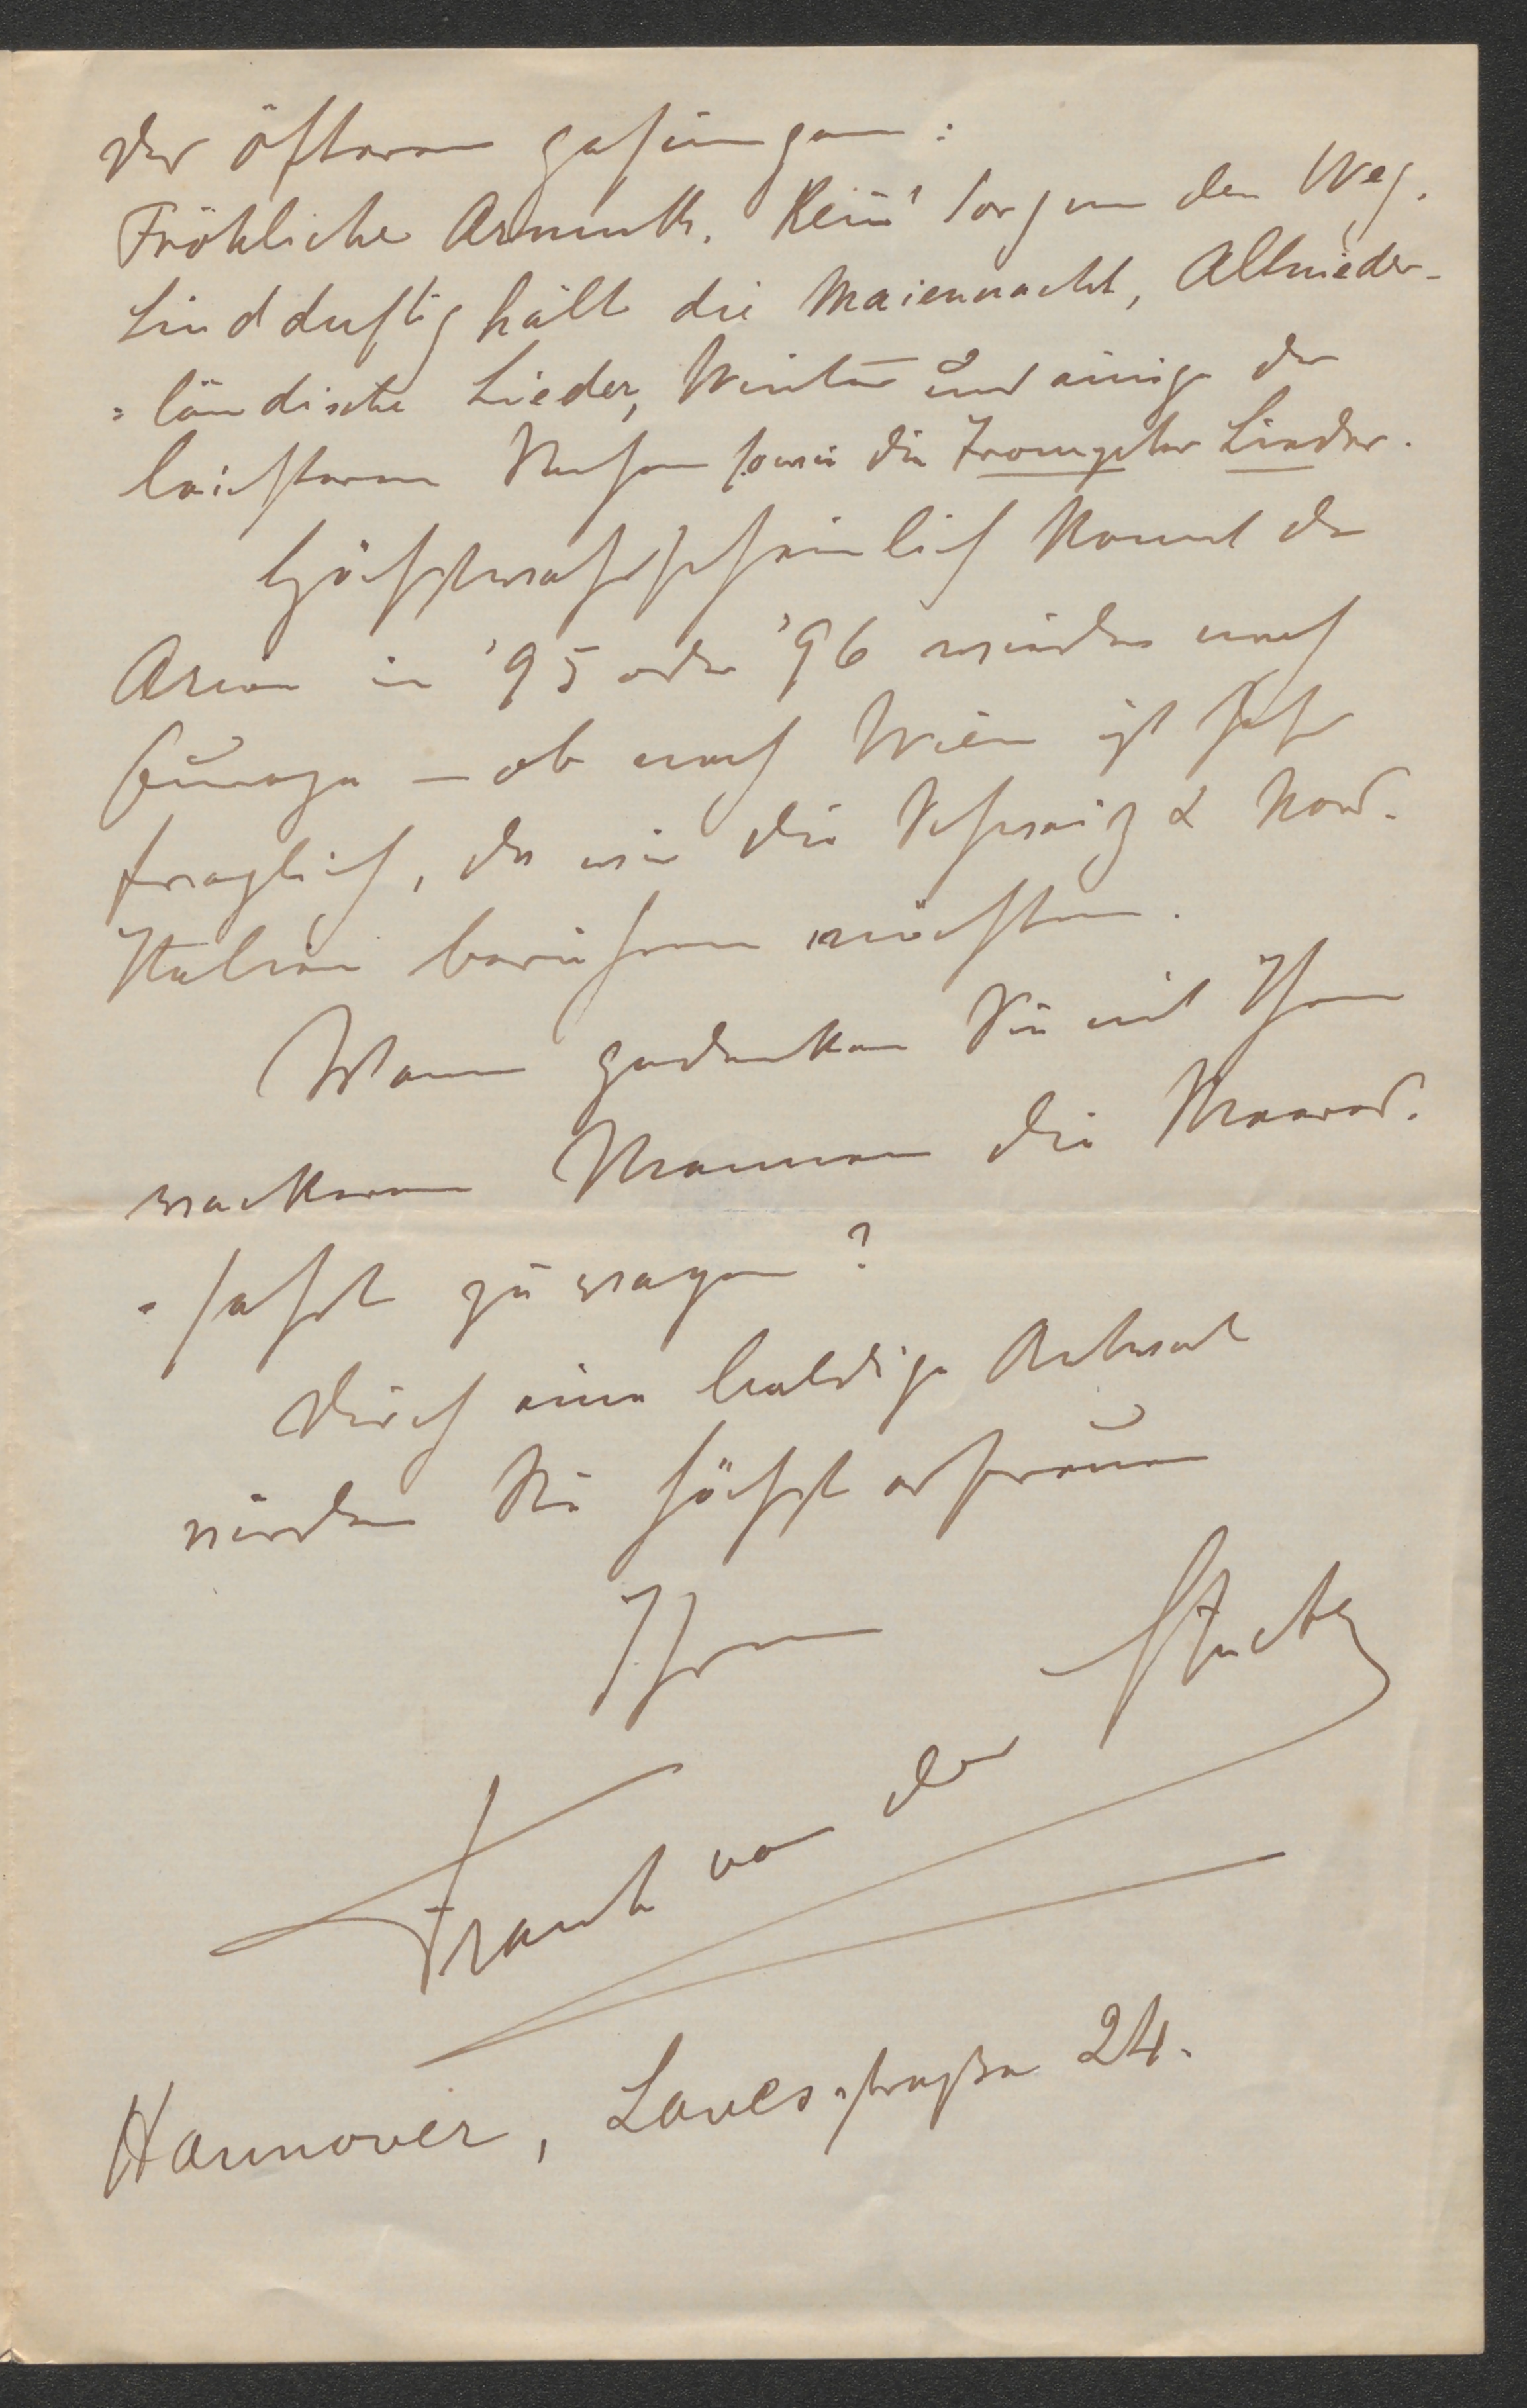 des öfteren gesungen:
Fröhliche Armuth. Kein' Sorg um den Weg.
Lind duftig hält die Maiennacht, Altnieder-
=ländische Lieder, Winter und einige der
leichteren Sachen sowie die Trompeter Lieder.
Höchstwahrscheinlich kommt der
Arion in '95 oder '96 wieder nach
Europa – ob nach Wien ist sehr
fraglich, da wir die Schweiz & Nord-
Italien bereisen möchten.
Wann gedenken Sie mit Ihren
wackeren Mannen die Meeres-
=fahrt zu wagen?
Durch eine baldige Antwort
würden Sie höchst erfreuen
Ihren
Frank van der Stucken
Hannover, Lavesstraße 24.